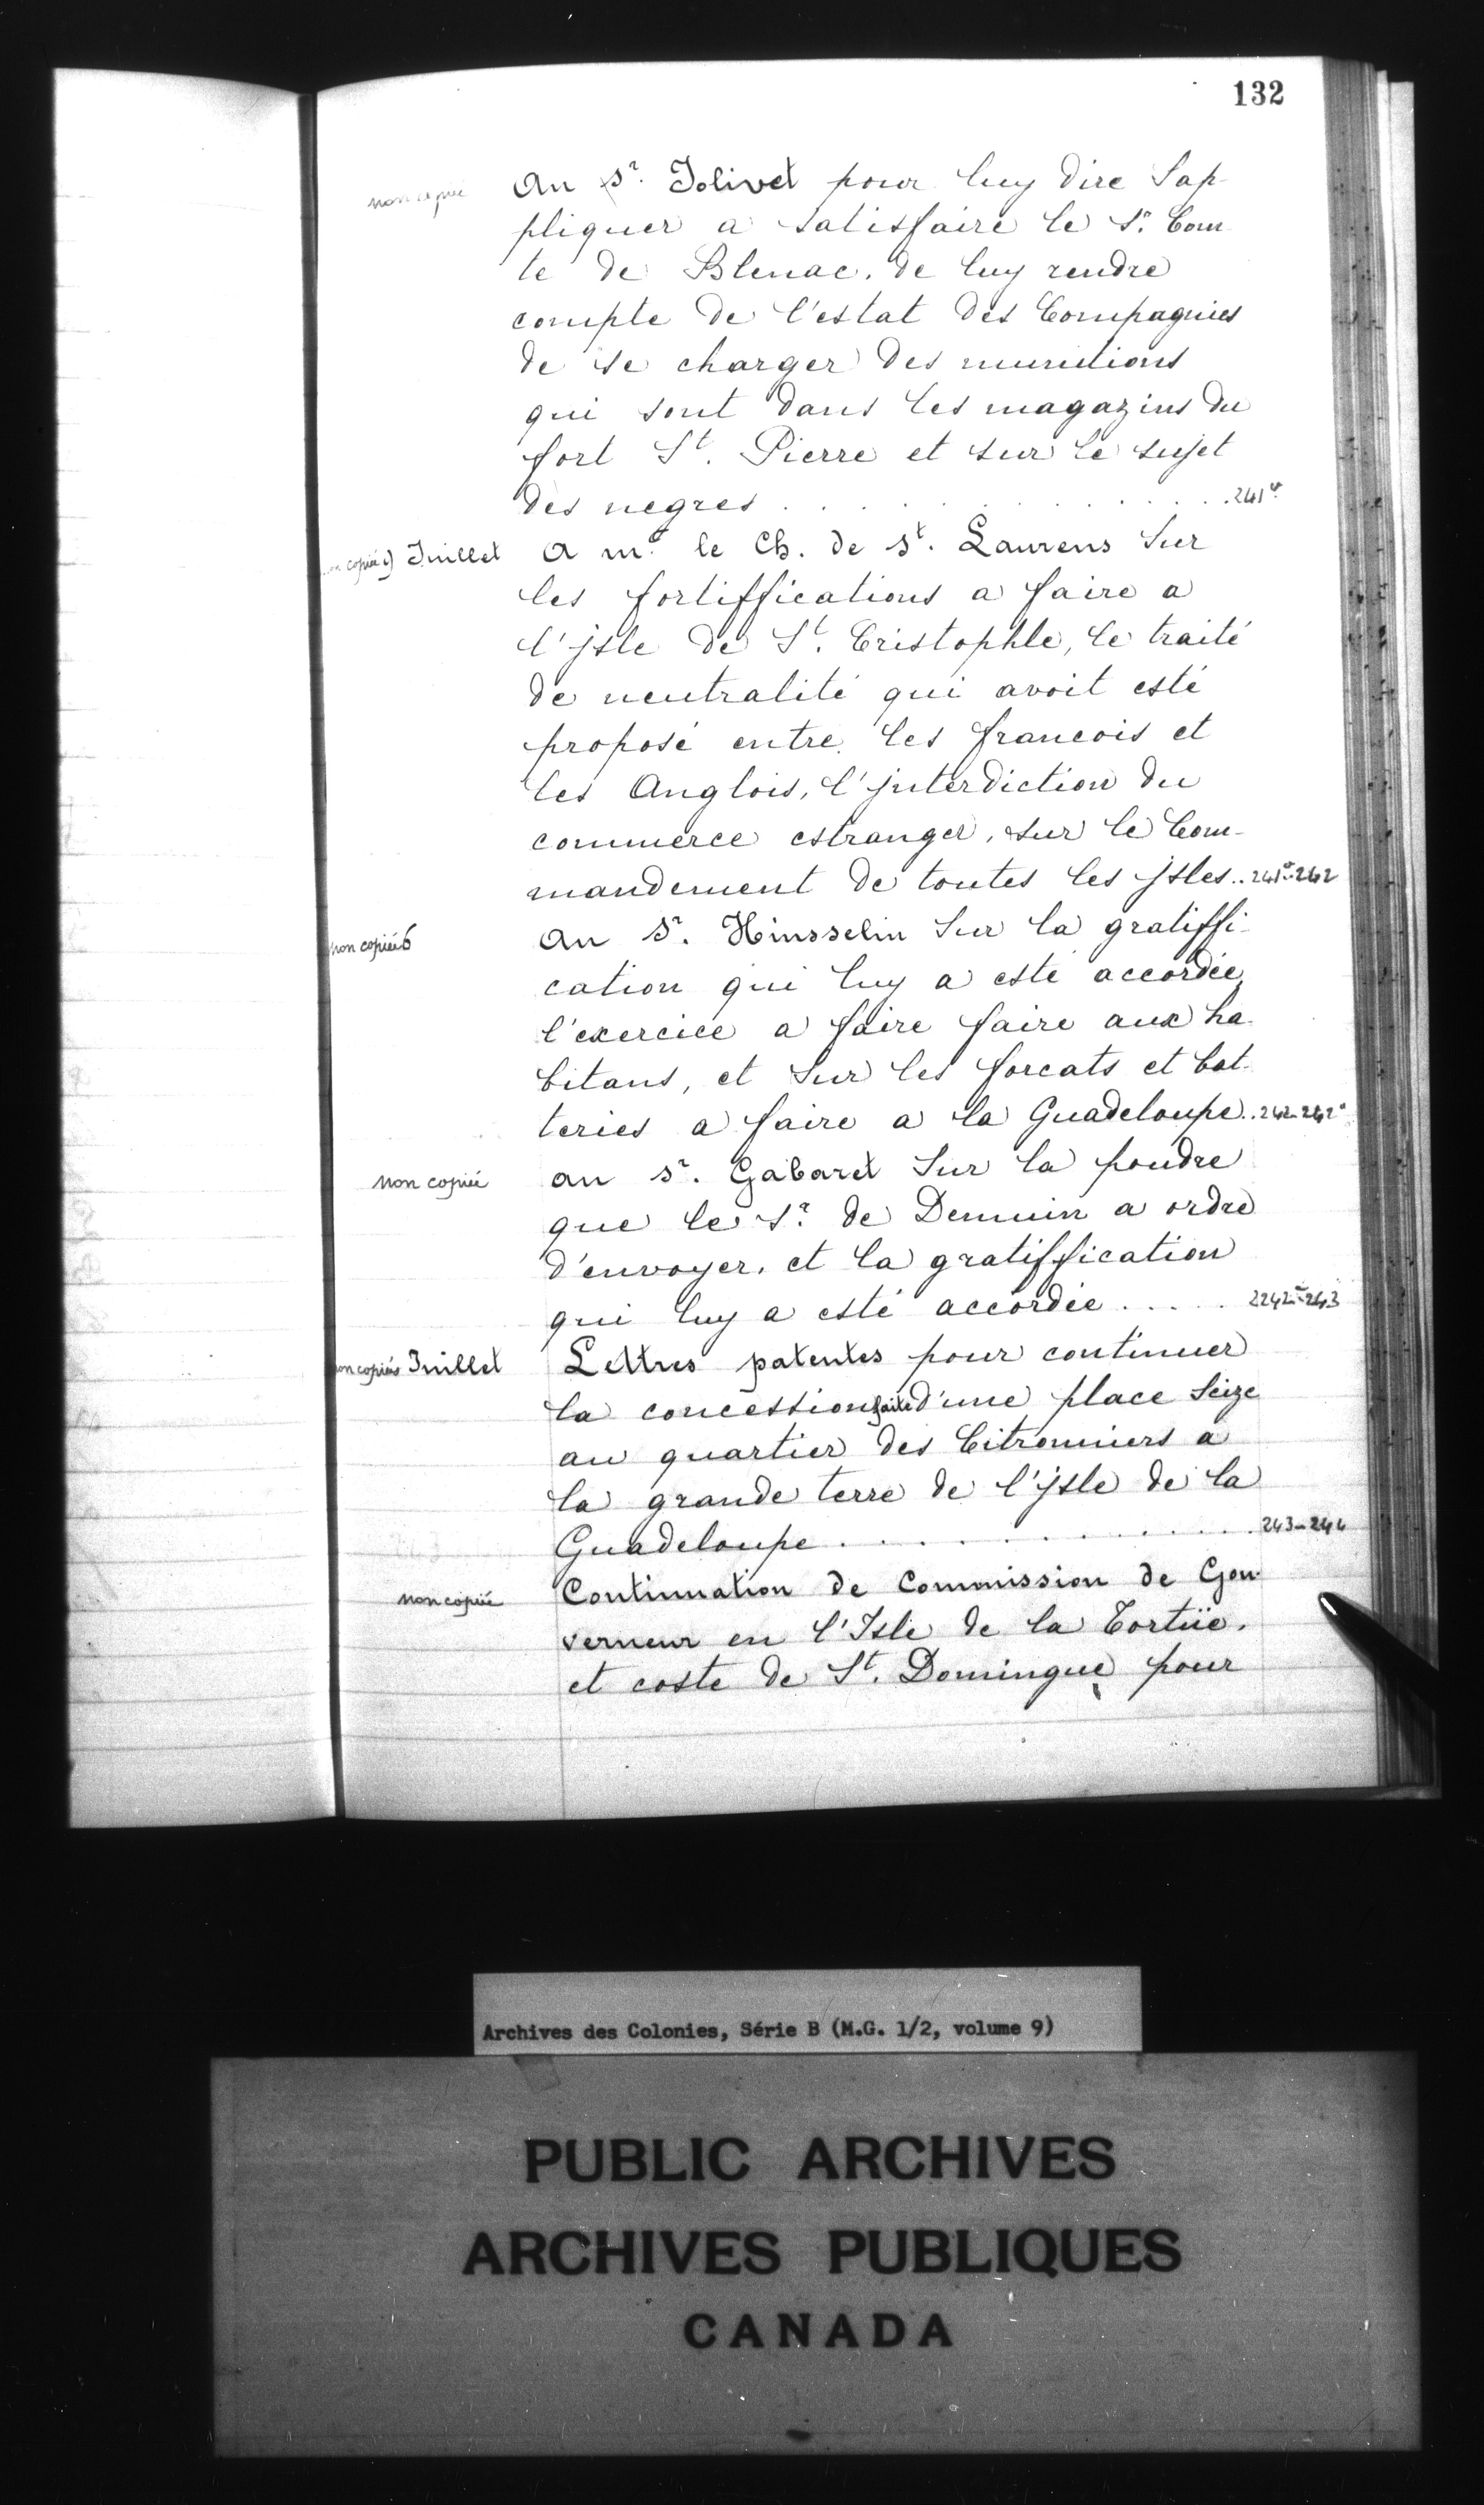 132
non copié Au Sr. Jolivet pour luy dire Sap-
pliquer a satisfaire le Sr. Com-
te de Blenac, de luy rendre
compte de l'estat des Compagnies
de se charger des munitions
qui sont dans les magazins du
fort St. Pierre et sur le sujet
des negres . . . . . . . . . 241vo
Juillet A mr. le Ch. de St. Laurens Sur
les fortiffications a faire a
l'jsle de St. Cristophle, le traité
de neutralité qui avoit esté
proposé entre les francois et
les Anglois, l'jnterdiction du
commerce estranger, sur le Com-
mandement de toutes les jsles.. 241vo-242
non copiée Au Sr. Hinsselin Sur la gratiffi-
cation qui luy a esté accordée,
l'exercice a faire faire aux ha-
bitans, et sur les forcats et bat-
teries a faire a la Guadeloupe.. 242-242vo
non copiée au Sr. Gabaret Sur la poudre
que le Sr. de Demuin a ordre
d'envoyer, et la gratiffication
qui luy a esté accordée . . . . . 2242vo-243
non copiées Juillet Lettres patentes pour continuer
la concession faite d'une place Seize
au quartier des Citronniers a
la grande terre de l'jsle de la
Guadeloupe . . . . . . . . . 243-244
non copiée Continuation de Commission de Gou-
verneur en l'Isle de la Tortüe,
et coste de St. Domingue pour
Archives des Colonies, Série B (M.G. 1/2, volume 9)
PUBLIC ARCHIVES
ARCHIVES PUBLIQUES
CANADA